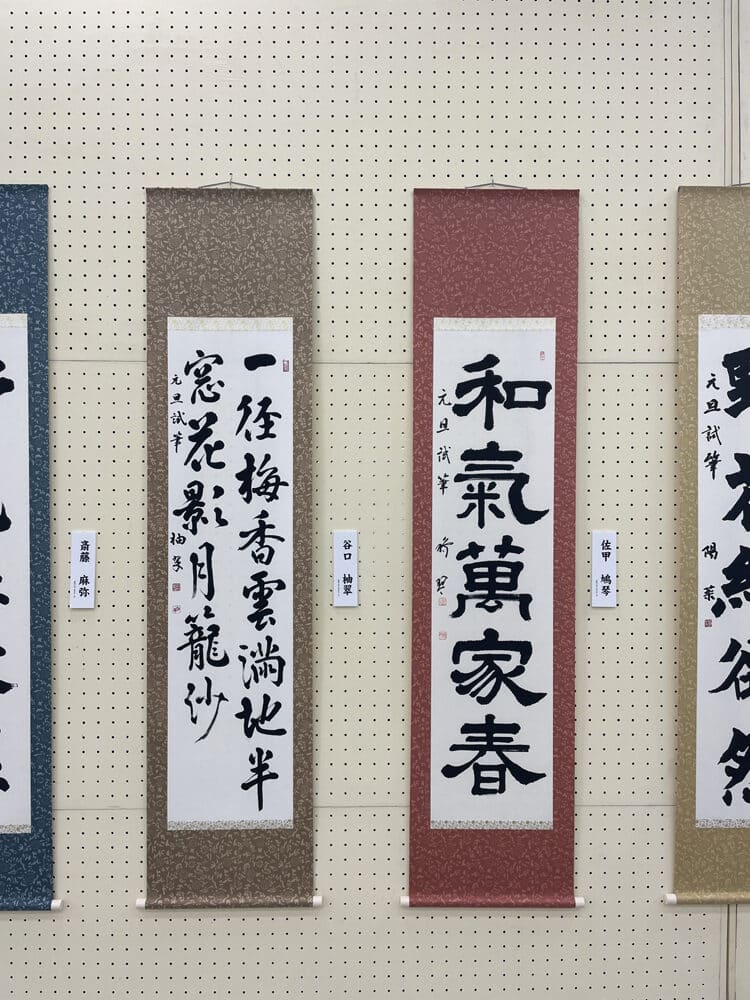 野花紅欲然
元旦試筆 陽
佐甲 鳩琴
和氣萬家春
元旦試筆
谷口 柚翠
一径梅香雲満地半
窓花影月籠沙
元旦試筆 柚翠
斎藤 麻弥